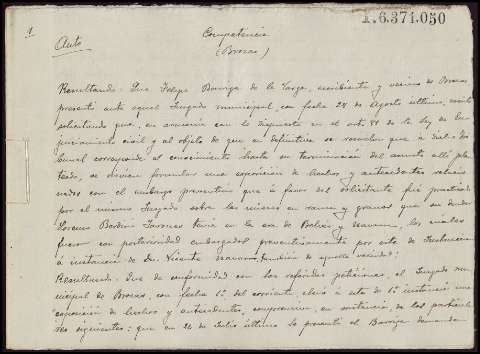 1.6.371.050
1
Auto
Competencia
(Brozas)
Resultando: Que Felipe Barriga de la Vega, escribiente y vecino de Brozas
presentó ante aquel Juzgado municipal, con fecha 28 de Agosto último, escrito
solicitando que, en armonía con lo dispuesto en el art. 88 de la ley de En-
juiciamiento civil y al objeto de que en definitiva se resuelva que
corresponde el conocimiento hasta su terminación del asunto allí plan-
teado, se eleven formulan una exposición de hechos y antecedentes relacio-
nados con el embargo preventivo que á favor del solicitante fué practicado
por el mismo Juzgado sobre las mieses en rama y granos que su deudor
Lorenzo tenía en la era de y, los cuales
fueron con posterioridad embargados preventivamente por este de
á instancia de Dn. Vicente Navarro también de aquella vecindad:
Resultando: Que de conformidad con las referidas peticiones, el Juzgado mu-
nicipal de Brozas, con fecha 1º del corriente, elevó á este de 1ª instancia una
exposición de hechos y antecedentes, comprensiva, en sustancia, de los particula-
res siguientes: que en 26 de Julio último se presentó el Barriga demanda